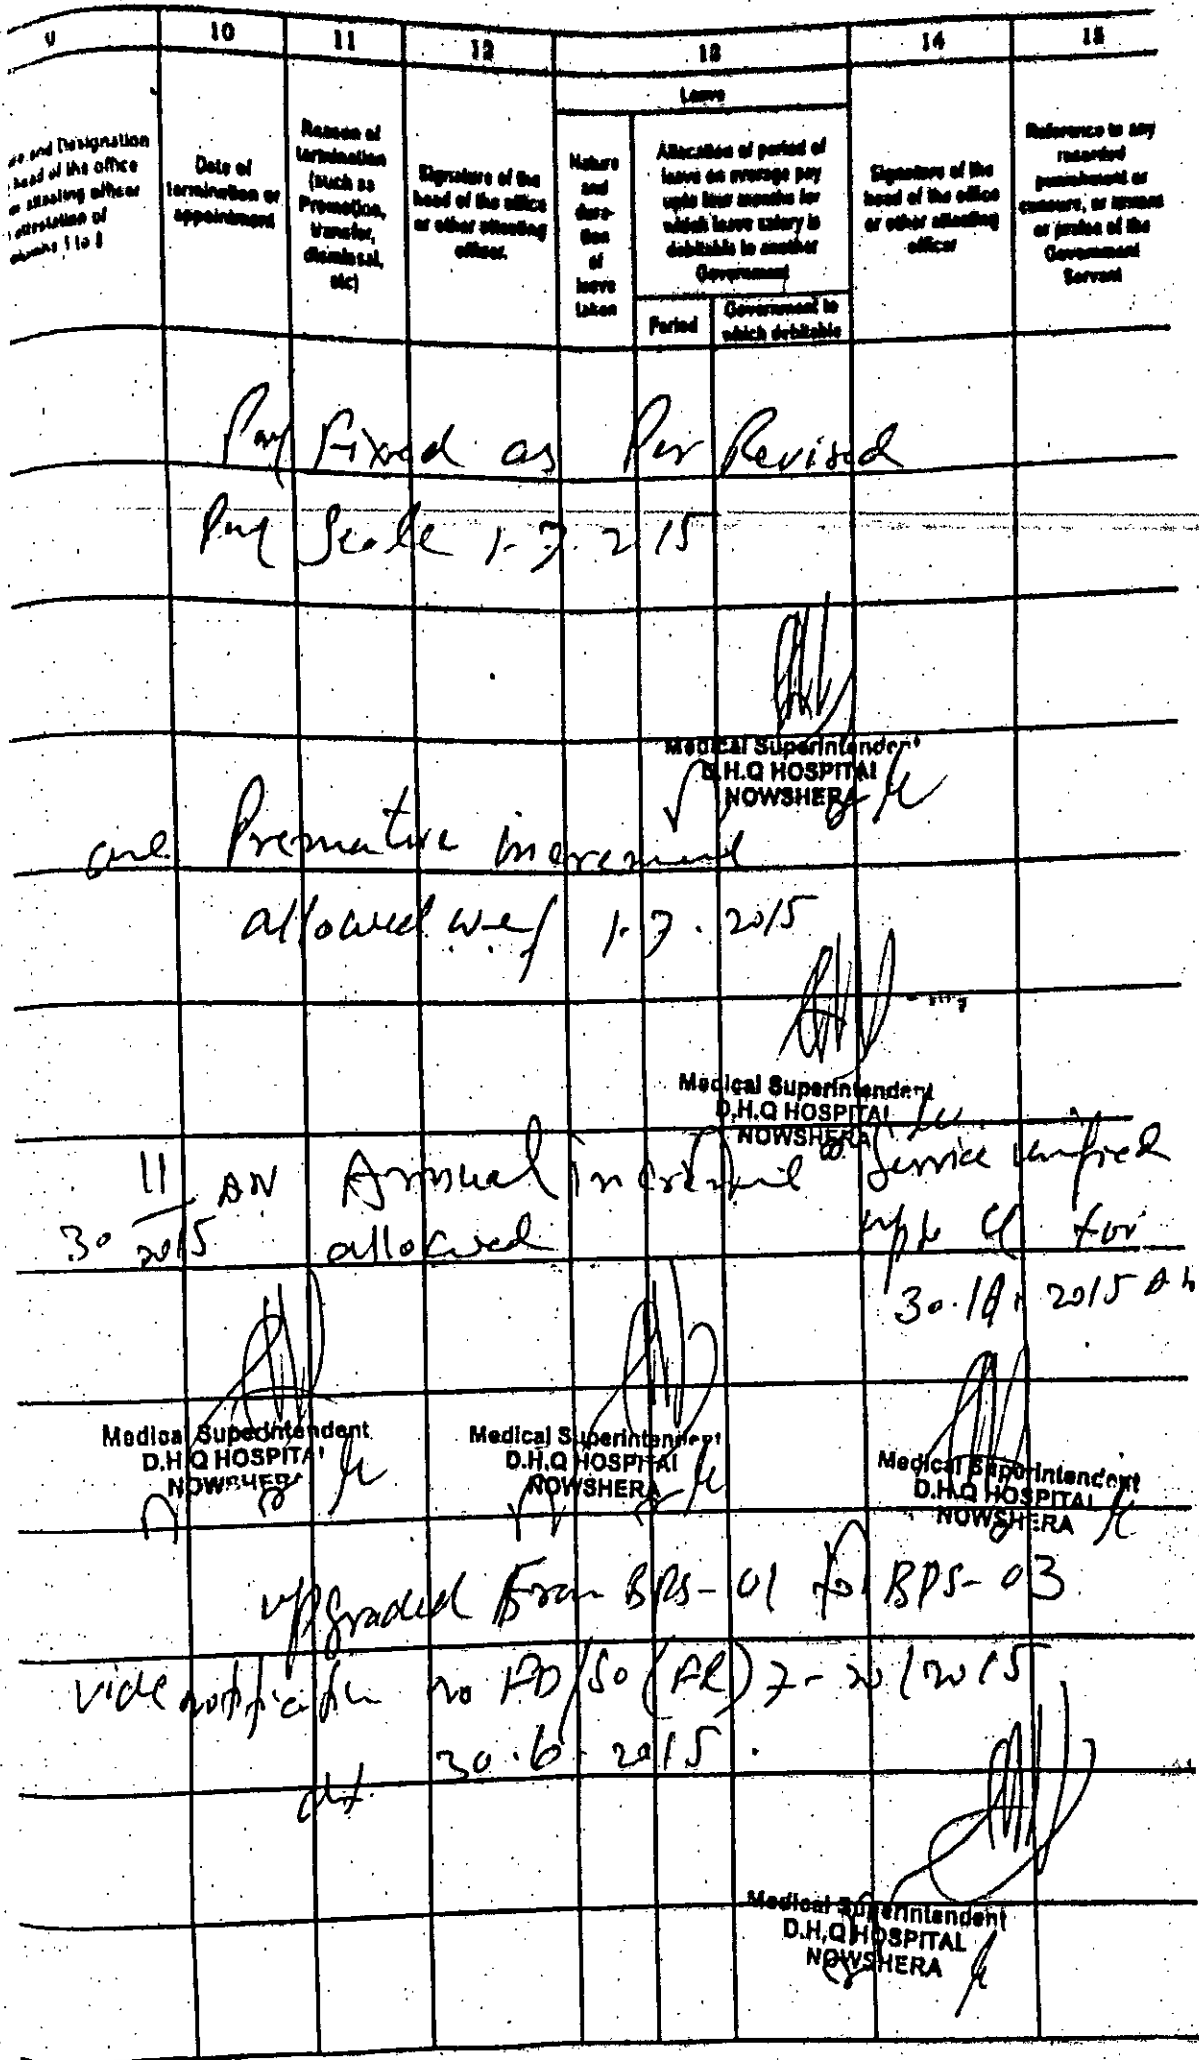 9 10 11 12 13 14 15
Leave
and Designation
head of the office
or attesting officer
attestation of
columns 1 to 8
Date of
termination or
appointment
Reason of
termination
(such as
Promotion,
transfer,
dismissal,
etc)
Signature of the
head of the office
or other attesting
officer.
Nature
and
dura-
tion
of
leave
taken
Allocation of period of
leave on average pay
upto four months for
which leave salary is
debitable to another
Government
Period
Government to
which debitable
Signature of the
head of the office
or other attesting
officer
Reference to any
recorded
punishment or
censure, or reward
or praise of the
Government
Servant
Pay Fixed as Per Revised
Pay Scale 1.7.2015
Medical Superintendent
D.H.Q HOSPITAL
NOWSHERA
one Premature increment
allowed w.e.f 1.7.2015
Medical Superintendent
D.H.Q HOSPITAL
NOWSHERA
30 11 2015 AN
Annual increment
allowed
Service verified
for
30. 2015 AN
Medical Superintendent
D.H.Q HOSPITAL
NOWSHERA
Medical Superintendent
D.H.Q HOSPITAL
NOWSHERA
Medical Superintendent
D.H.Q HOSPITAL
NOWSHERA
upgraded From BPS-01 to BPS-03
vide notification no FD/SO(FR) 7-20/2015
dt. 30.6.2015.
Medical Superintendent
D.H.Q HOSPITAL
NOWSHERA